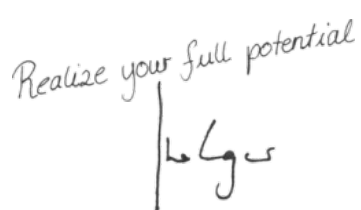 Realize your full potential